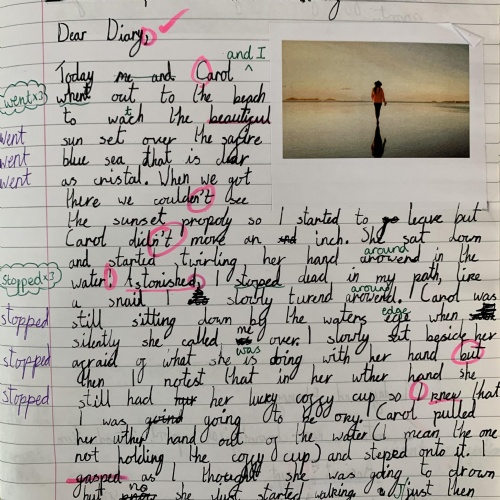 Dear Diary,
and I
Today me and Carol ^
whent out to the beach
went x3
to watch the beautiful
went
sun set over the safire
went
blue sea that is clear
went
as cristal. When we got
there we couldn't see
the sunset propoly so I started to go leave but
Carol didn't move an inch. She sat down
around
and started twirling her hand arowend in the
water! Astonished, I stoped dead in my path, like
stopped x3
around
a snail I slowly turend arowend. Carol was
edge
stopped
still sitting down by the waters when
me
silently she called over. I slowly sat beside her
was
stopped
afraid of what she is doing with her hand but
then I notest that in her wther hand she
stopped
still had her lucky coffy cup so I knew that
I was going going to be oky. Carol pulled
her wthy hand out of the water (I mean the one
not holding the coffy cup) and steped onto it. I
gasped as I thought she was going to drown
no
but she just started walking. Just then